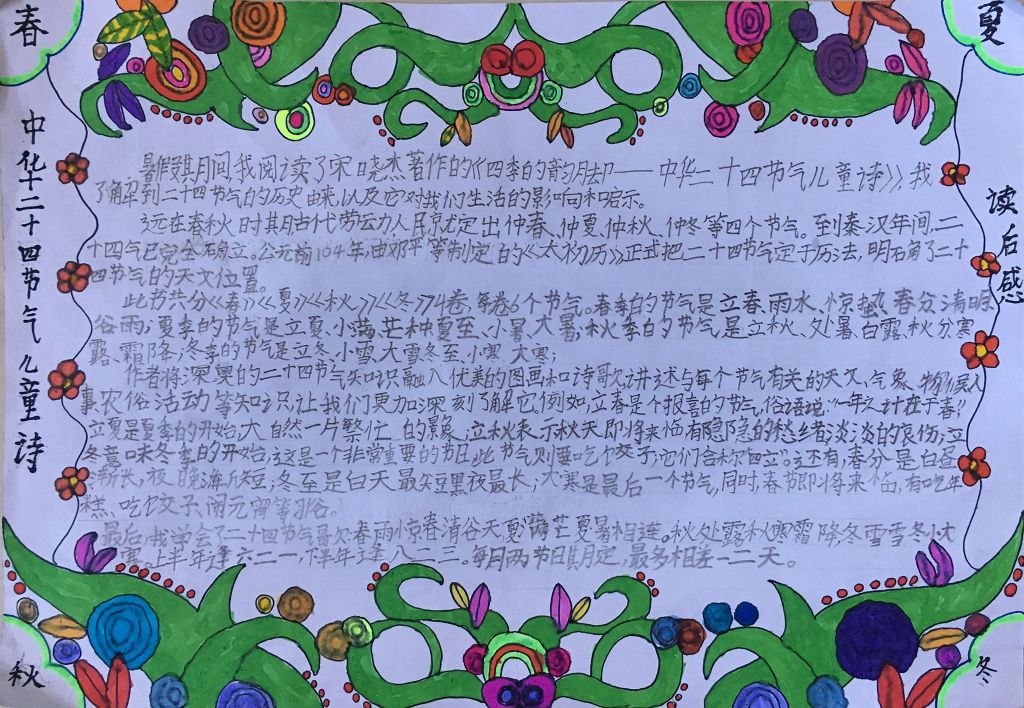 春
夏
中华二十四节气儿童诗
读后感
暑假期间,我阅读了宋晓杰著作的《四季的韵脚——中华二十四节气儿童诗》,我
了解到二十四节气的历史由来,以及它对我们生活的影响和启示。
远在春秋时期古代劳动人民就定出仲春、仲夏、仲秋、仲冬等四个节气。到秦汉年间,二
十四气已完全确立。公元前104年,由邓平等制定的《太初历》正式把二十四节气定于历法,明确了二十
四节气的天文位置。
此书共分《春》《夏》《秋》《冬》4卷,每卷6个节气。春季的节气是立春、雨水、惊蛰、春分、清明、
谷雨;夏季的节气是立夏、小满、芒种夏至、小暑、大暑;秋季的节气是立秋、处暑、白露、秋分寒
露、霜降;冬季的节气是立冬、小雪、大雪冬至、小寒大寒;
作者将深奥的二十四节气知识融入优美的图画和诗歌,讲述与每个节气有关的天文、气象、物候、
事、农俗活动等知识,让我们更加深刻了解它,例如,立春是个报喜的节气,俗语说:“一年之计在于春”
立夏是夏季的开始,大自然一片繁忙的景象,立秋表示秋天即将来临有隐隐的愁绪淡淡的哀伤;立
冬意味冬季的开始,这是一个非常重要的节日,此节气则要吃饺子,它们合称“四立”。还有,春分是白昼
渐长,夜晚渐短,冬至是白天最短黑夜最长;大寒是最后一个节气,同时,春节即将来临,有吃年
糕、吃饺子、闹元宵等习俗。
最后,我学会了二十四节气歌:春雨惊春清谷天,夏满芒夏暑相连。秋处露秋寒霜降,冬雪雪冬小大
寒。上半年逢六二一,下半年逢八二三。每月两节日期定,最多相差一二天。
秋
冬